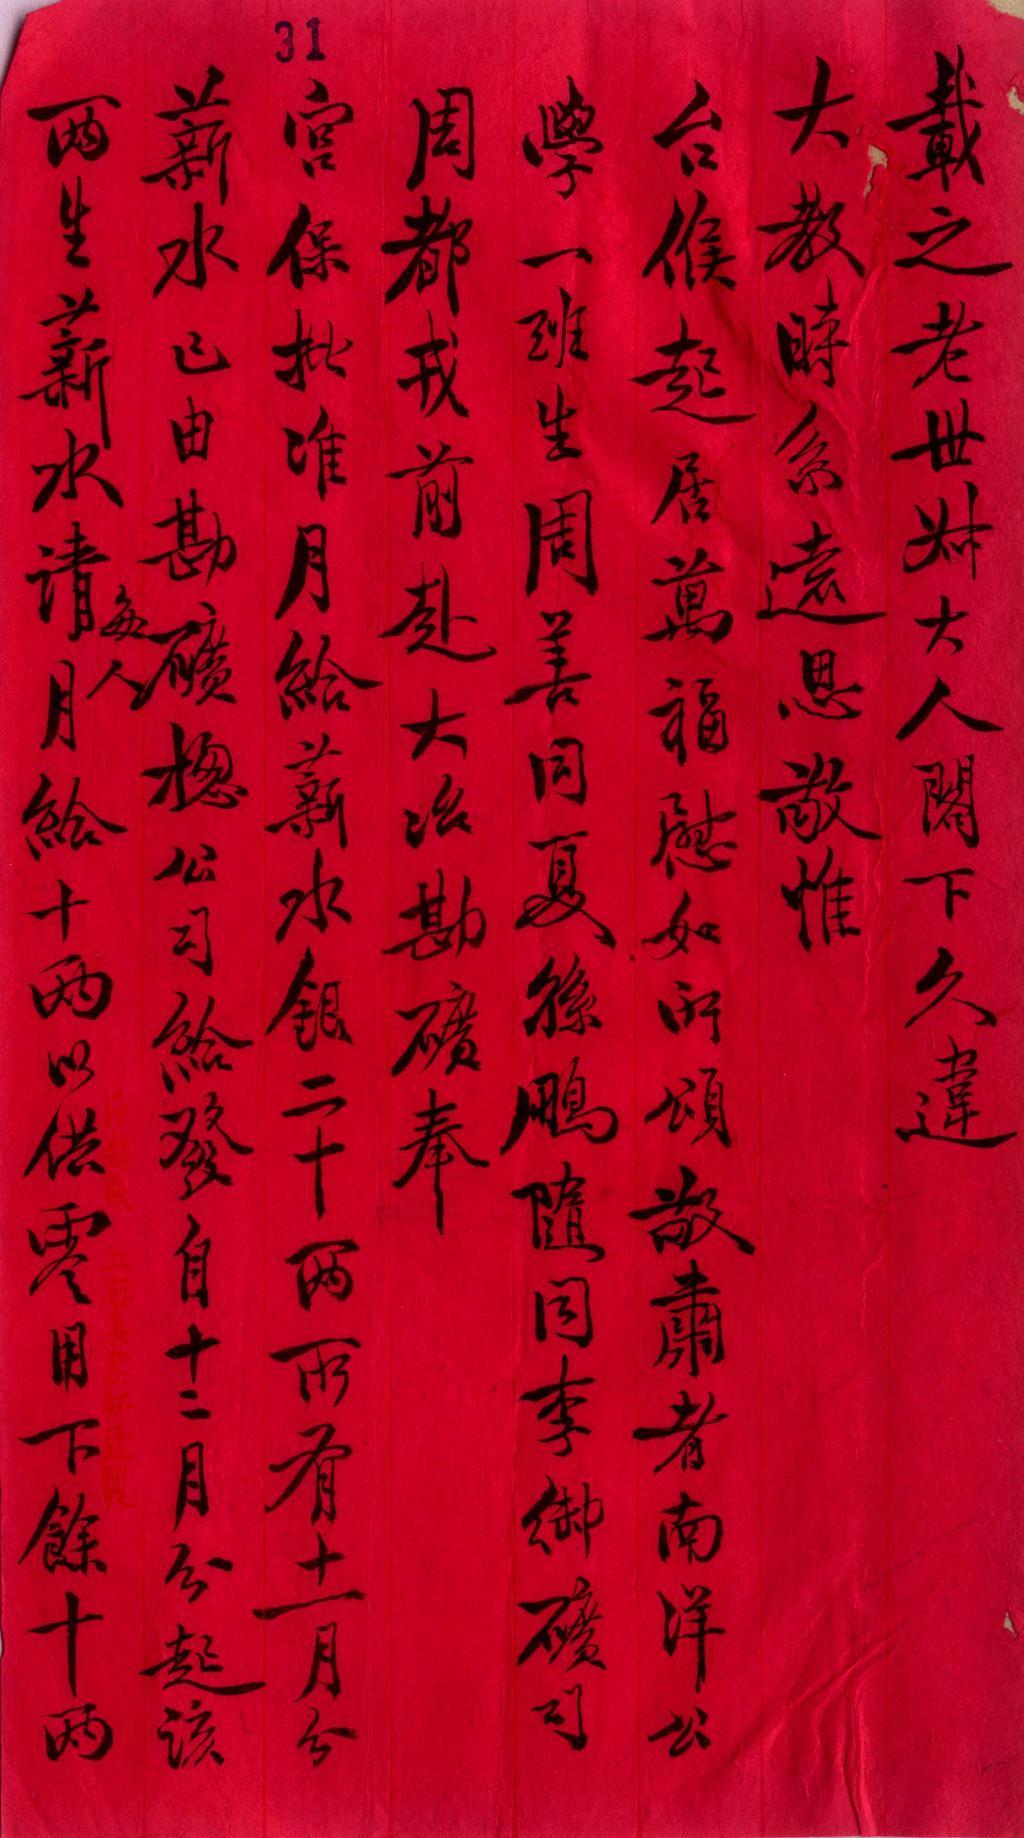 31
載之老世叔大人閣下久違
大教時系遠思敬惟
台候起居萬福慰如所頌敬肅者南洋公
學一班生周善同夏孫鵬隨同李御礦司
周都戎前赴大冶勘礦奉
宮保批准月給薪水銀二十兩所有十一月分
薪水已由勘礦總公司給發自十二月分起該
兩生薪水請每人月給十兩以供零用下餘十兩